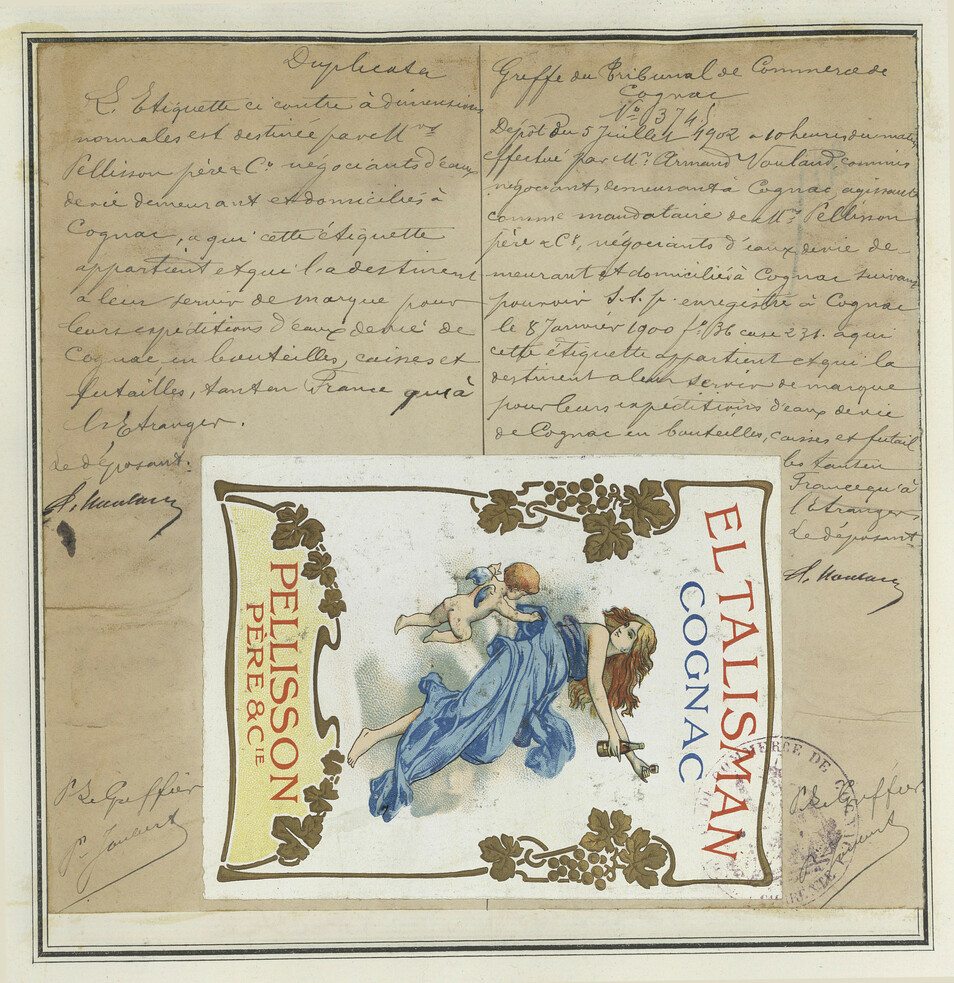 Duplicata
L'Etiquette ci contre à dimensions
normales est destinée par M.rs
Pellisson père & Cie négociants d'eaux
de vie demeurant et domiciliés à
Cognac, a qui cette étiquette
appartient et qui l'a destinent
à leur servir de marque pour
leurs expéditions d'eaux de vie de
Cognac en bouteilles, caisses et
futailles, tant en France qu'à
l'Etranger.
Le déposant.
Greffe du Tribunal de Commerce de
Cognac
No 374
Dépôt du 5 Juillet 1902 a 10 heures du matin
effectué par Mr Armand Vouland, commis
négociant, demeurant à Cognac, agissant
comme mandataire de Mrs Pellisson
père & Cie, négociants d'eaux de vie de-
meurant et domiciliés à Cognac suivant
pouvoir S.S.p. enregistré à Cognac
le 8 Janvier 1900 fo 36 case 231. a qui
cette étiquette appartient et qui la
destinent a leur servir de marque
pour leurs expéditions d'eaux de vie
de Cognac en bouteilles, caisses et futail
les tant en
France qu'à
l'Etranger,
Le déposant
EL TALISMAN
COGNAC
PELLISSON
PÈRE & CIE
Pr Le Greffier
Pr Le Greffier
COMMERCE DE COGNAC